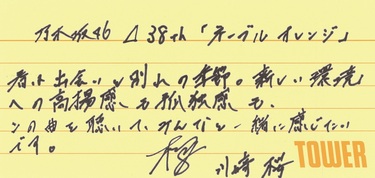 乃木坂46 ⊿ 38th 「ネーブルオレンジ」
春は出会いと別れの季節。新しい環境
への高揚感も孤独感も、
この曲を聴いて、みんなと一緒に感じたい
です。
川﨑 桜
TOWER